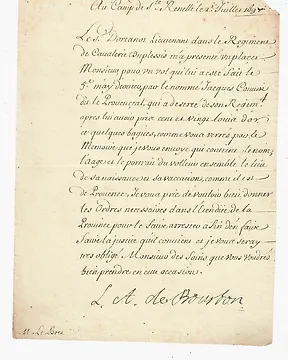 Au Camp de S.te Renelle le 2.e Juillet 169
Le S.r Dortano Lieutenant dans le Regiment
de Cavalerie Duplessis m'a presenté un placet
Monsieur pour un vol qui luy a esté fait le
5.e may dernier par le nommé Jacques
dit le Provençal, qui a deserté de son Regim.t
apres luy avoir pris cent et vingt louis d'or
et quelques bagues, comme vous verres par le
Memoire que je vous envoye, qui contient le nom,
l'aage et le portrait du volleur ensemble le lieu
de sa naissance ou sa vacation, comme il est
de Provence, Je vous prie de vouloir bien donner
les Ordres necessaires dans l'étendue de la
Province pour le faire arrester afin d'en faire
faire la justice qu'il convient et je vous seray
tres obligé Monsieur des soins que vous voudrés
bien prendre en cette occasion.
L. A. de Bourbon
M. Le Bret